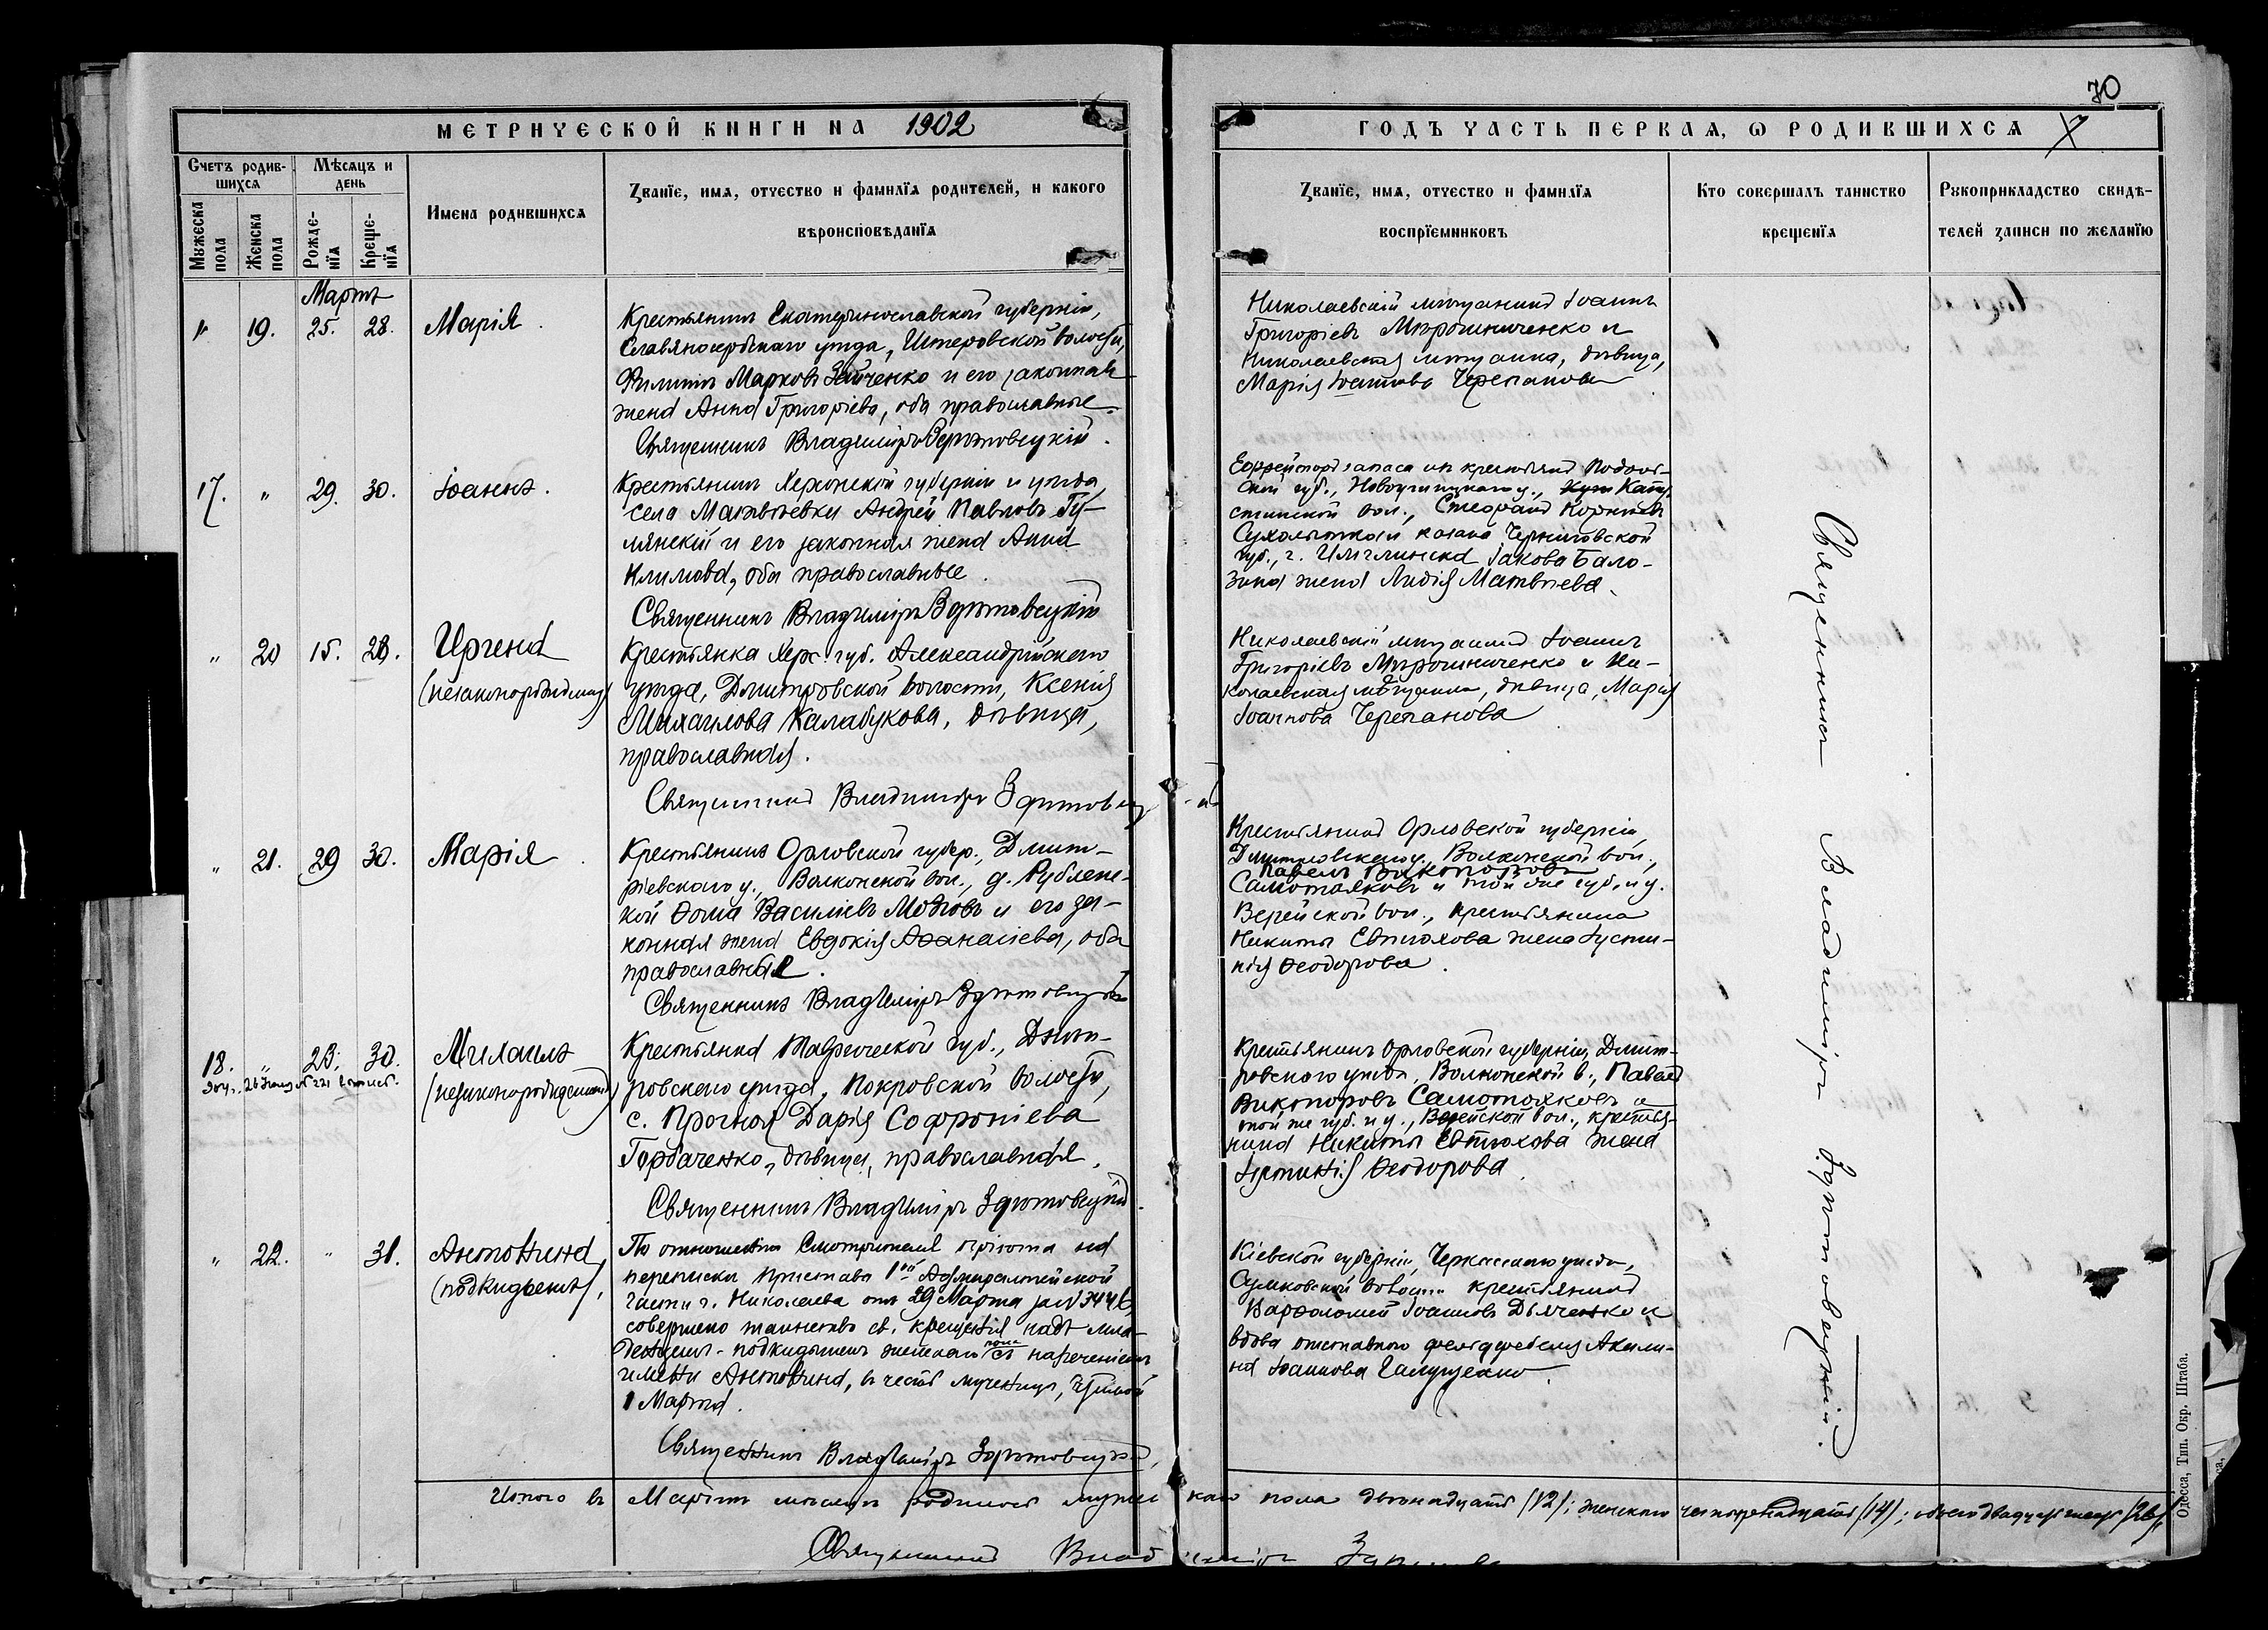 70
МЕТРИЧЕСКОЙ КНИГИ НА 1902
ГОДЪ ЧАСТЬ ПЕРВАЯ, Ѡ РОДИВШИХСЯ
Счетъ родив-
шихся
Мѣсяцъ и
день
Мужеска
пола
Женска
пола
Рожде-
нїя
Креще-
нїя
Имена родившихся
Званїе, имя, отчество и фамилїя родителей, и какого
вѣроисповѣданїя
Званїе, имя, отчество и фамилїя
воспрїемниковъ
Кто совершалъ таинство
крещенїя
Рукоприкладство свидѣ-
телей записи по желанїю
Мартъ
" 19. 25. 28. Марія.
Крестьянинъ Екатеринославской губерніи,
Славяносербскаго уѣзда, Штеровской волости,
Филиппъ Марковъ Зайченко и его законная
жена Анна Григоріева, оба православные.
Священникъ Владиміръ
Николаевскій мѣщанинъ Іоаннъ
Григоріевъ Мирошниченко и
Николаевская мѣщанка, дѣвица,
Марія Іоаннова Черепанова
17. " 29. 30. Іоаннъ.
Крестьянинъ Херсонской губерніи и уѣзда,
села Матвѣевки Андрей Павловъ Гу-
лянскій и его законная жена Анна
Климова, оба православные.
Священникъ Владиміръ
Ефрейторъ запаса изъ крестьянъ Подоль-
ской губ., Новоушицкаго у.,
вол., Стефанъ
и казака Черниговской
губ., г. Іакова Бало-
жена Лидія Матвѣева.
" 20 15. 28. Иргена
(незаконнорожденная)
Крестьянка Херс. губ. Александрійскаго
уѣзда, Дмитровской волости, Ксенія
Михаилова Калабукова, дѣвица,
православная.
Священникъ Владиміръ
Николаевскій мѣщанинъ Іоаннъ
Григоріевъ Мирошниченко и Ни-
колаевская мѣщанка, дѣвица, Марія
Іоаннова Черепанова
" 21. 29 30. Марія
Крестьянинъ Орловской губер., Дмит-
ріевскаго у., Волконской вол., д. Рублен-
кой Ѳома Василіевъ и его за-
конная жена Евдокія Аѳанасіева, оба
православные.
Священникъ Владиміръ
Крестьянинъ Орловской губерніи,
Дмитровскаго у., Волконской вол.,
Павелъ Викторовъ
Самотояковъ и той же губ. и у.
Верейской вол., крестьянина
Никиты Евтюхова жена Іусти-
нія Ѳеодорова.
18. " 23. 30. Михаилъ
(незаконнорожденный)
Крестьянка Таврической губ., Днѣп-
ровскаго уѣзда, Покровской волости,
с. Прогной Дарія Софроніева
Горбаченко, дѣвица, православная.
Священникъ Владиміръ
Крестьянинъ Орловской губерніи, Дмит-
ровскаго уѣзда, Волконской в., Павелъ
Викторовъ Самотояковъ и
той же губ. и у., Верейской вол., крестья-
нина Никиты Евтюхова жена
Іустинія Ѳеодорова.
" 22. " 31. Антонина
(подкидышъ)
По отношенію Смотрителя пріюта на
переписки Пристава 1ой Адмиралтейской
части г. Николаева отъ 29 Марта за №
совершено таинство св. крещенія надъ мла-
денцемъ-подкидышемъ женскаго пола съ нареченіемъ
имени Антонина, въ честь мученицы, чтимой
1 Марта.
Священникъ Владиміръ
Кіевской губерніи, Черкасскаго уѣзда,
волости крестьянинъ
Варѳоломей Іоанновъ Дьяченко и
вдова отставного фельдфебеля Акили-
на Іоаннова
Священникъ Владиміръ
Итого въ Мартѣ мѣсяцѣ родилось мужескаго пола двѣнадцать (12); женскаго четырнадцать (14); обоего двадцать шесть (26).
Священникъ Владиміръ
Одесса, Тип. Окр. Штаба.